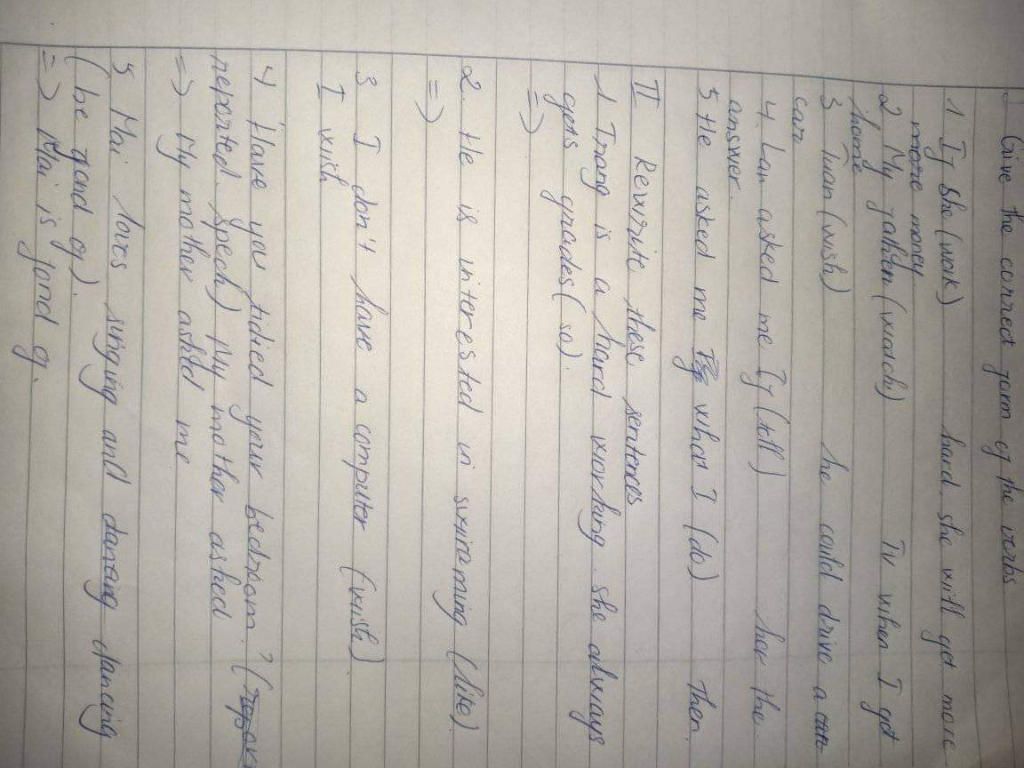 I Give the correct form of the verbs
1 If she (work) hard she will get more
more money
2 My father (watch) TV when I got
home
3 Tuan (wish) he could drive a
car
4. Lan asked me If (tell) her the
answer.
5 He asked me what I (do) then
II Rewrite these sentences
1 Trang is a hard working she always
gets grades (so).
=>
2. He is interested in swimming (like)
=>
3 I don't have a computer (wish)
I wish
4 "Have you tidied your bedroom? (
reported speech) My mother asked
=> My mother asked me
5 Mai loves singing and dancing dancing
( be fond of).
=> Mai is fond of.